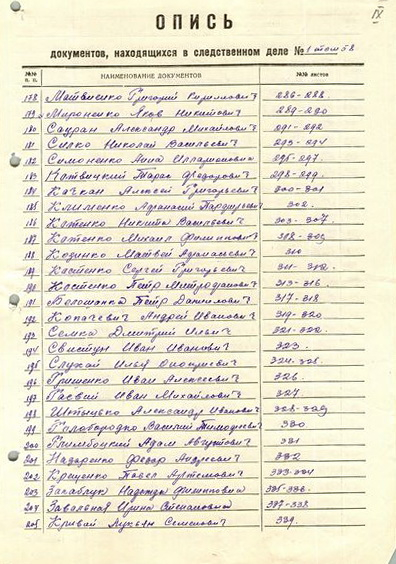 IX
ОПИСЬ
документов, находящихся в следственном деле № 1 том 58
№№ п. п. НАИМЕНОВАНИЕ ДОКУМЕНТОВ №№ листов
178 Матвиенко Григорий Кириллович 286-288
179 Мироненко Яков Никитович 289-290
180 Сауран Александр Михайлович 291-292
181 Силко Николай Васильевич 293-294
182 Симоненко Анна Илларионовна 295-297
183 Катвицкий Тарас Федорович 298-299
184 Качкан Алексей Григорьевич 300-301
185 Клименко Афанасий 302
186 Катенко Никита Васильевич 303-307
187 Катенко Михаил Филиппович 308-309
188 Кодинко Матвей Афанасьевич 310
189 Костенко Сергей Григорьевич 311-312
190 Костенко Петр Митрофанович 313-316
191 Волошанка Петр Данилович 317-318
192 Копачевич Андрей Иванович 319-320
193 Семка Дмитрий Ильич 321-322
194 Свистун Иван Иванович 323
195 Слухай Илья 324-325
196 Гришенко Иван Алексеевич 326
197 Гаевий Иван Михайлович 327
198 Александр Иванович 328-329
199 Василий Тимофеевич 330
200 Адам Августович 331
201 Назаренко Федор Андреевич 332
202 Крещенко Павел Артемович 333-334
203 Запаблук Надежда Филипповна 335-336
204 Завальная Ирина Степановна 337-338
205 Кривай Лукьян Семенович 339